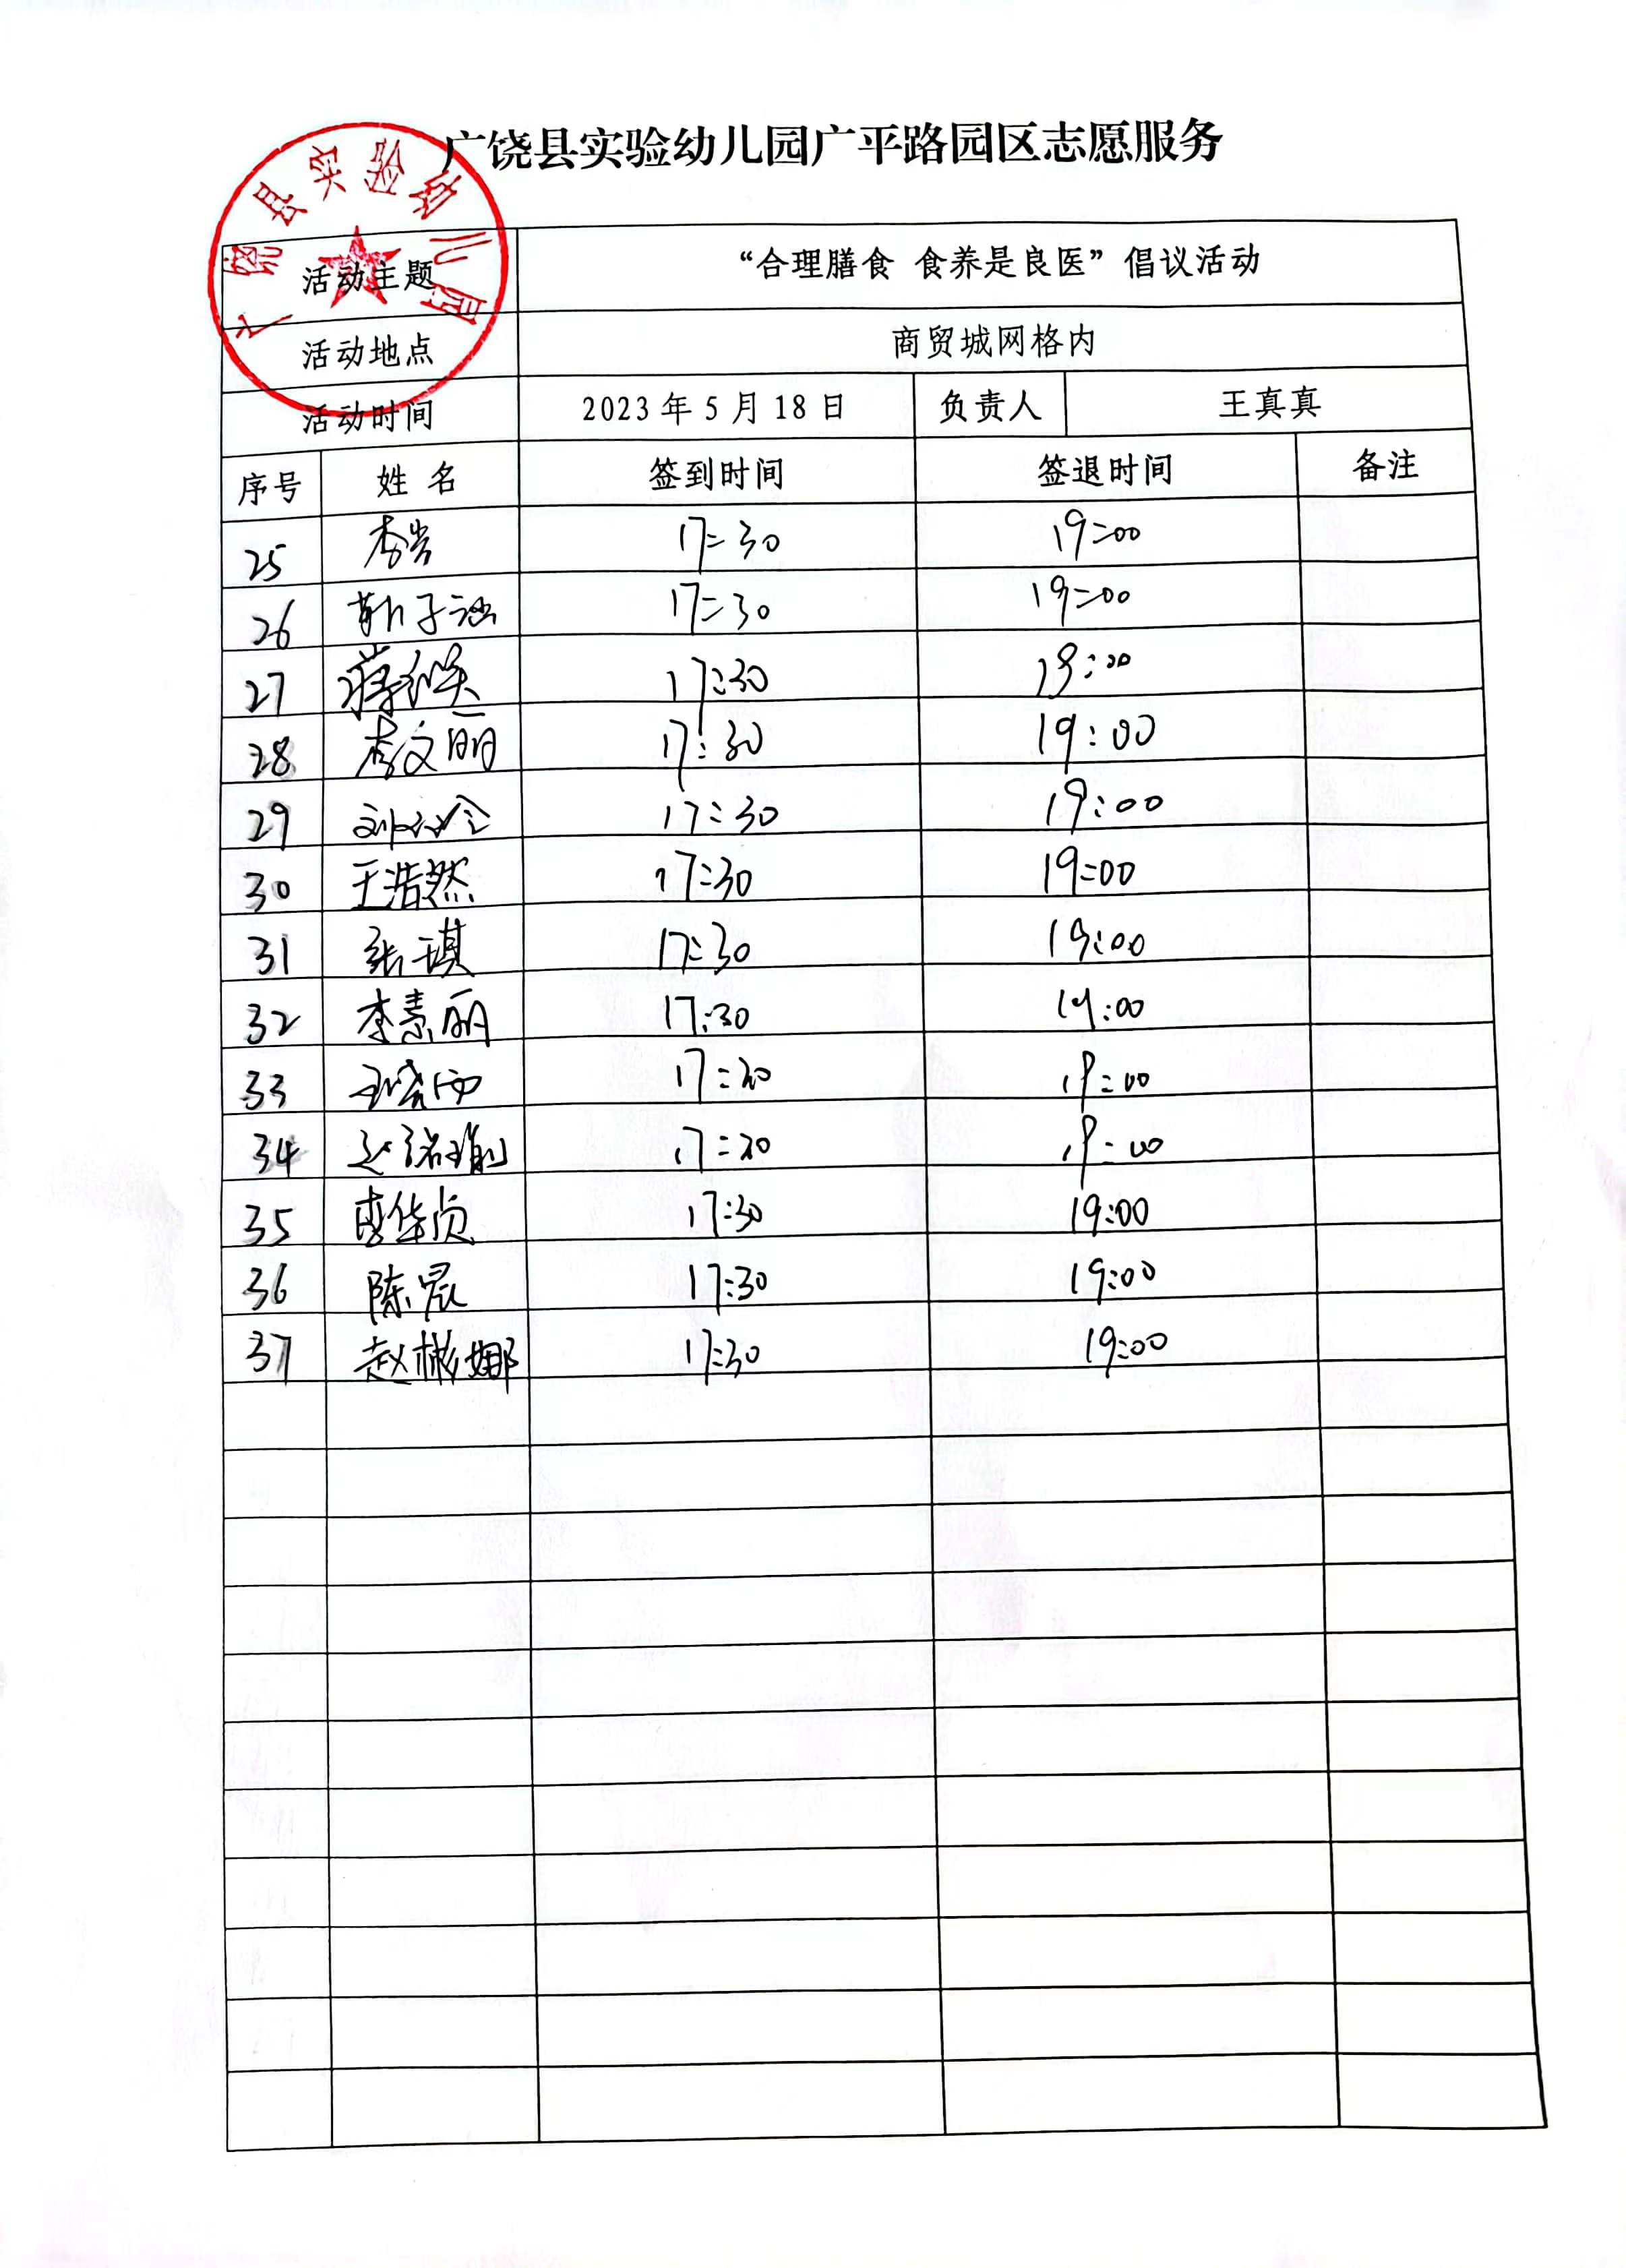 广饶县实验幼儿园广平路园区志愿服务
广饶县实验幼儿园
活动主题 “合理膳食 食养是良医”倡议活动
活动地点 商贸城网格内
活动时间 2023年5月18日 负责人 王真真
序号 姓名 签到时间 签退时间 备注
25 17:30 19:00
26 靳子涵 17:30 19:00
27 17:30 19:00
28 李文丽 17:30 19:00
29 17:30 19:00
30 王浩然 17:30 19:00
31 张琪 17:30 19:00
32 李素丽 17:30 19:00
33 17:30 19:00
34 17:30 19:00
35 17:30 19:00
36 陈晨 17:30 19:00
37 赵彬娜 17:30 19:00